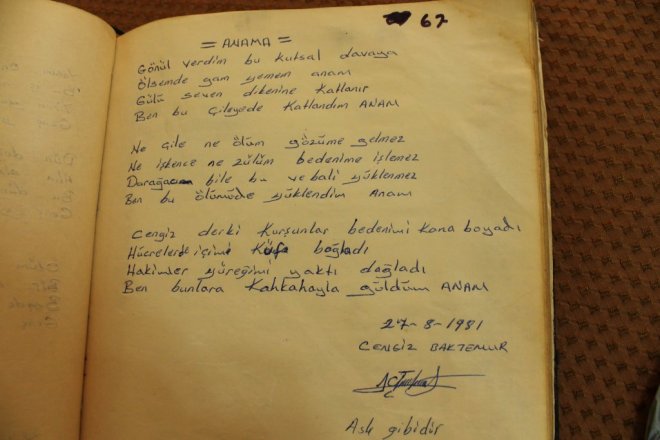 67
= ANAMA =
Gönül verdim bu kutsal davaya
Ölsemde gam yemem anam
Gülü seven dikenine katlanır
Ben bu çileyede katlandım ANAM
Ne çile ne ölüm gözüme gelmez
Ne işkence ne zülüm bedenime işlemez
Darağacı bile bu vebali yüklenmez
Ben bu ölümüde yüklendim Anam
Cengiz derki kurşunlar bedenimi kana boyadı
Hücrelerde içimi küf bağladı
Hakimler yüreğimi yaktı dağladı
Ben bunlara kahkahayla güldüm ANAM
27-8-1981
CENGİZ BAKTEMUR
Aslı gibidir